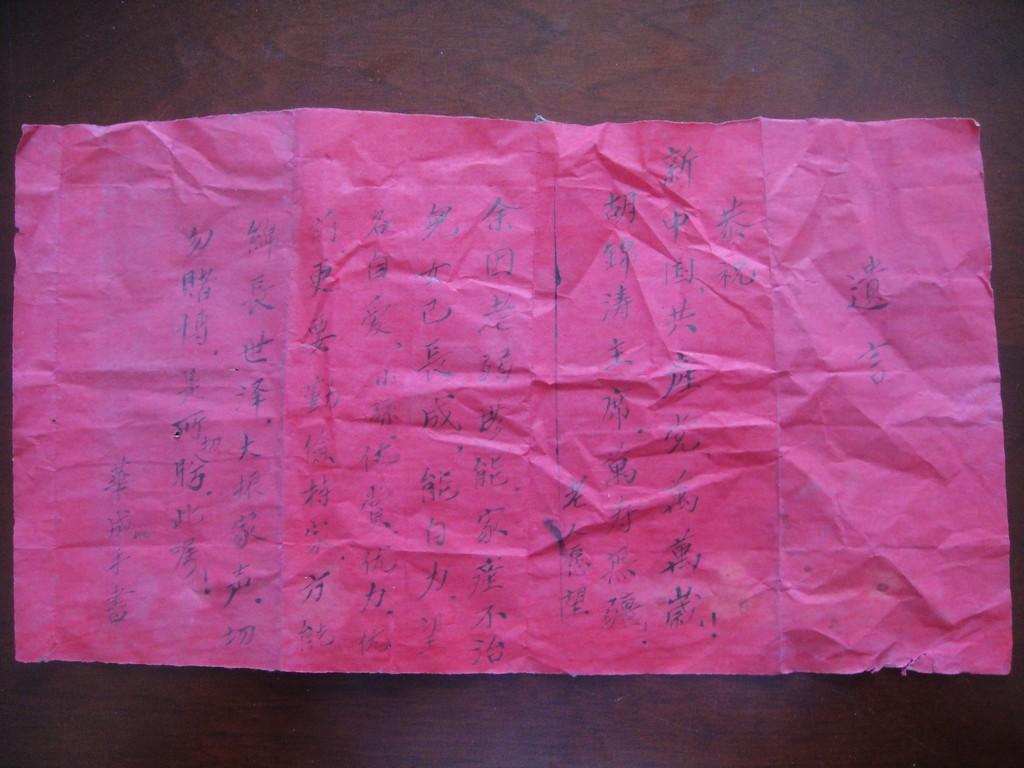 遺言
恭祝
新中国共産党、萬萬歲!
胡錦涛主席、萬寿無疆!
老人愿望
余因老弱無能、家産不治
兒女已長成、能自力、望
各自愛、小孫优賞优力、优
前、更要勤儉持家、方能
綿長世泽、大振家声、切
勿賭博、是所切盼、此嘱!
華成手書